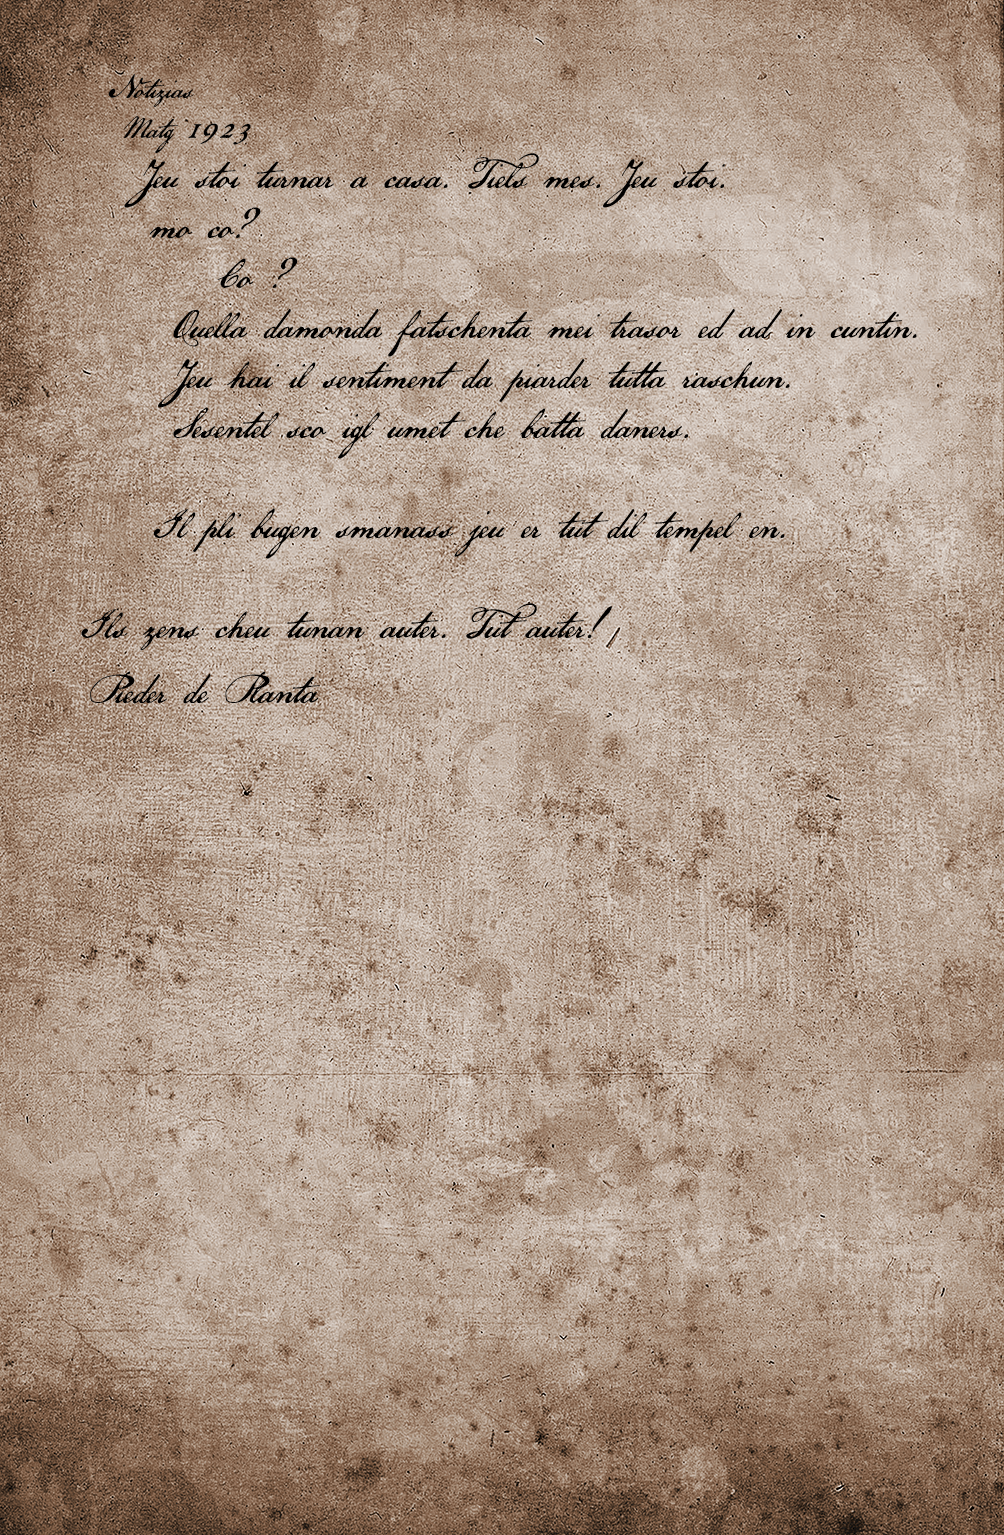 Notizias
Matg 1923
Jeu stoi turnar a casa. Tiels mes. Jeu stoi.
mo co?
Co ?
Quella damonda fatschenta mei trasor ed ad in cuntin.
Jeu hai il sentiment da piarder tutta raschun.
Sesentel sco igl umet che batta daners.
Il pli bugen smanass jeu er tut dil tempel en.
Ils zens cheu tunan auter. Tut auter!
Pieder de Planta